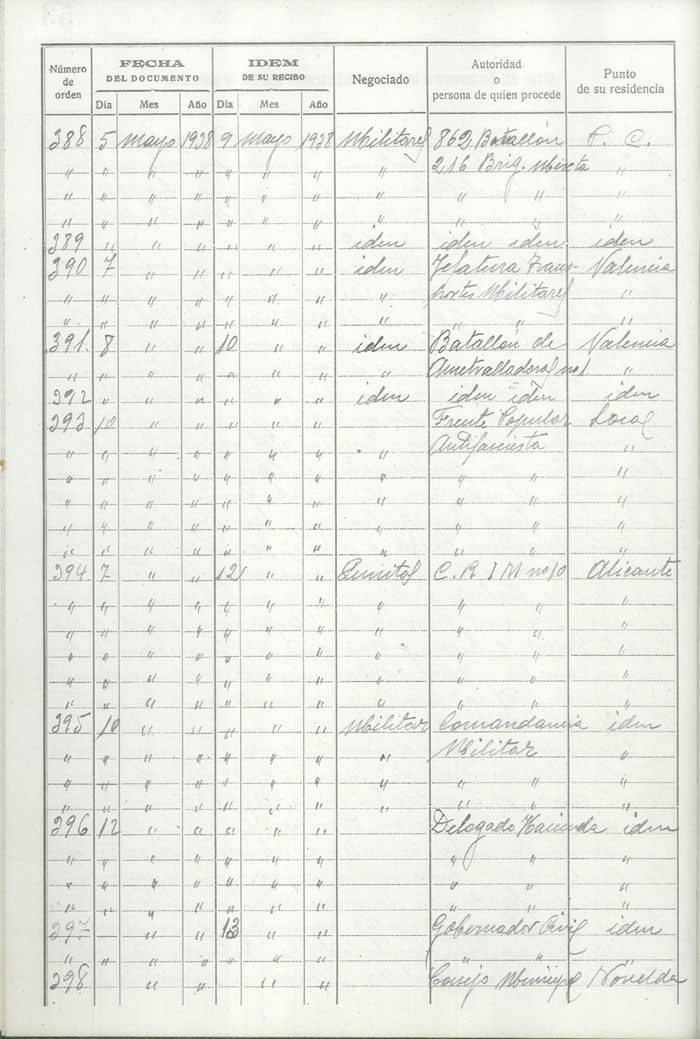 Número de orden | FECHA DEL DOCUMENTO | IDEM DE SU RECIBO | Negociado | Autoridad o persona de quien procede | Punto de su residencia
Día | Mes | Año | Día | Mes | Año
388 5 Mayo 1938 9 Mayo 1938 Militares 862 Batallón P. C.
" " " " " " " " 216 Brig. Mixta "
" " " " " " " " " " "
" " " " " " " " " " "
389 " " " " " " iden iden iden iden
390 7 " " " " " iden Jefatura Trans- Valencia
" " " " " " " " portes Militares "
" " " " " " " " " " "
391. 8 " " 10 " " iden Batallón de Valencia
" " " " " " " " Ametralladoras nº 1. "
392 " " " " " " iden iden iden iden
393 10 " " " " " Frente Popular Local
" " " " " " " " Antifascista "
" " " " " " " " " " "
" " " " " " " " " " "
" " " " " " " " " " "
" " " " " " " " " " "
394. 7 " " 12 " " Quintas C. R I M nº 10 Alicante
" " " " " " " " " " "
" " " " " " " " " " "
" " " " " " " " " " "
" " " " " " " " " " "
" " " " " " " " " " "
395 10 " " " " " Militar Comandancia iden
" " " " " " " " Militar "
" " " " " " " " " " "
" " " " " " " " " " "
396 12 " " " " " Delegado Hacienda iden
" " " " " " " " " "
" " " " " " " " " "
" " " " " " " " " "
397 " " 13 " " Gobernador Civil iden
" " " " " " " " " "
398 " " " " Consejo Municipal Novelda